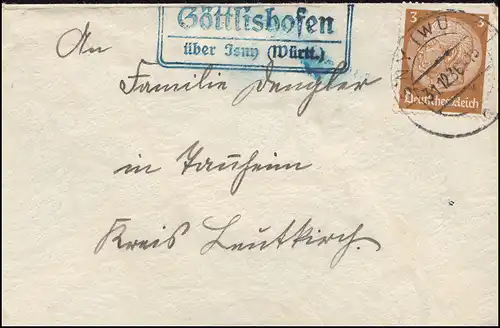 Göttlishofen
über Isny (Württ.)
3 3
Deutsches Reich
ISNY (WÜ
31.12.36
An
Familie Dengler
in Tauxheim
Kreis Leutkirch.